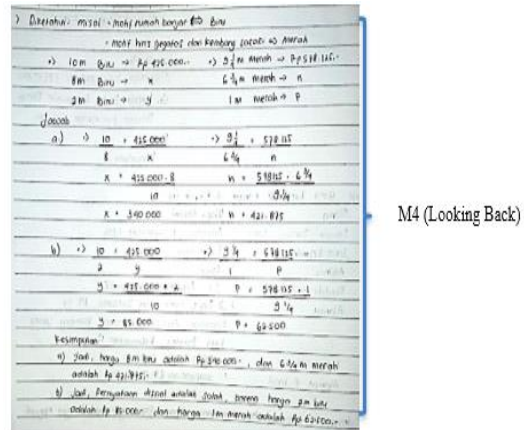 Diketahui: misal · motif rumah banjar ⇔ Biru
· motif hiris gagatas dan kembang sasar ⇔ merah
·) 10 m Biru → Rp 425.000,- ·) 9 1/4 m merah → Rp 578.125,-
8m Biru → x 6 3/4 m merah → n
2m Biru → y 1 m merah → P
Jawab
a) ·) 10/8 = 425.000/x ·) 9 1/4 / 6 3/4 = 578.125/n
x = 425.000 . 8 / 10 n = 578125 . 6 3/4 / 9 1/4
x = 340 000 n = 421.875
b) ·) 10/2 = 425.000/y ·) 9 1/4 / 1 = 578125/P
y = 425.000 . 2 / 10 P = 578125 . 1 / 9 1/4
y = 85.000 P = 62500
Kesimpulan
a) Jadi, harga 8m biru adalah Rp 340.000,-, dan 6 3/4 m merah
adalah Rp 421.875,-
b) Jadi, Pernyataan disoal adalah salah, karena harga 2m biru
adalah Rp 85.000,- dan harga 1m merah adalah Rp 62.500,-
M4 (Looking Back)